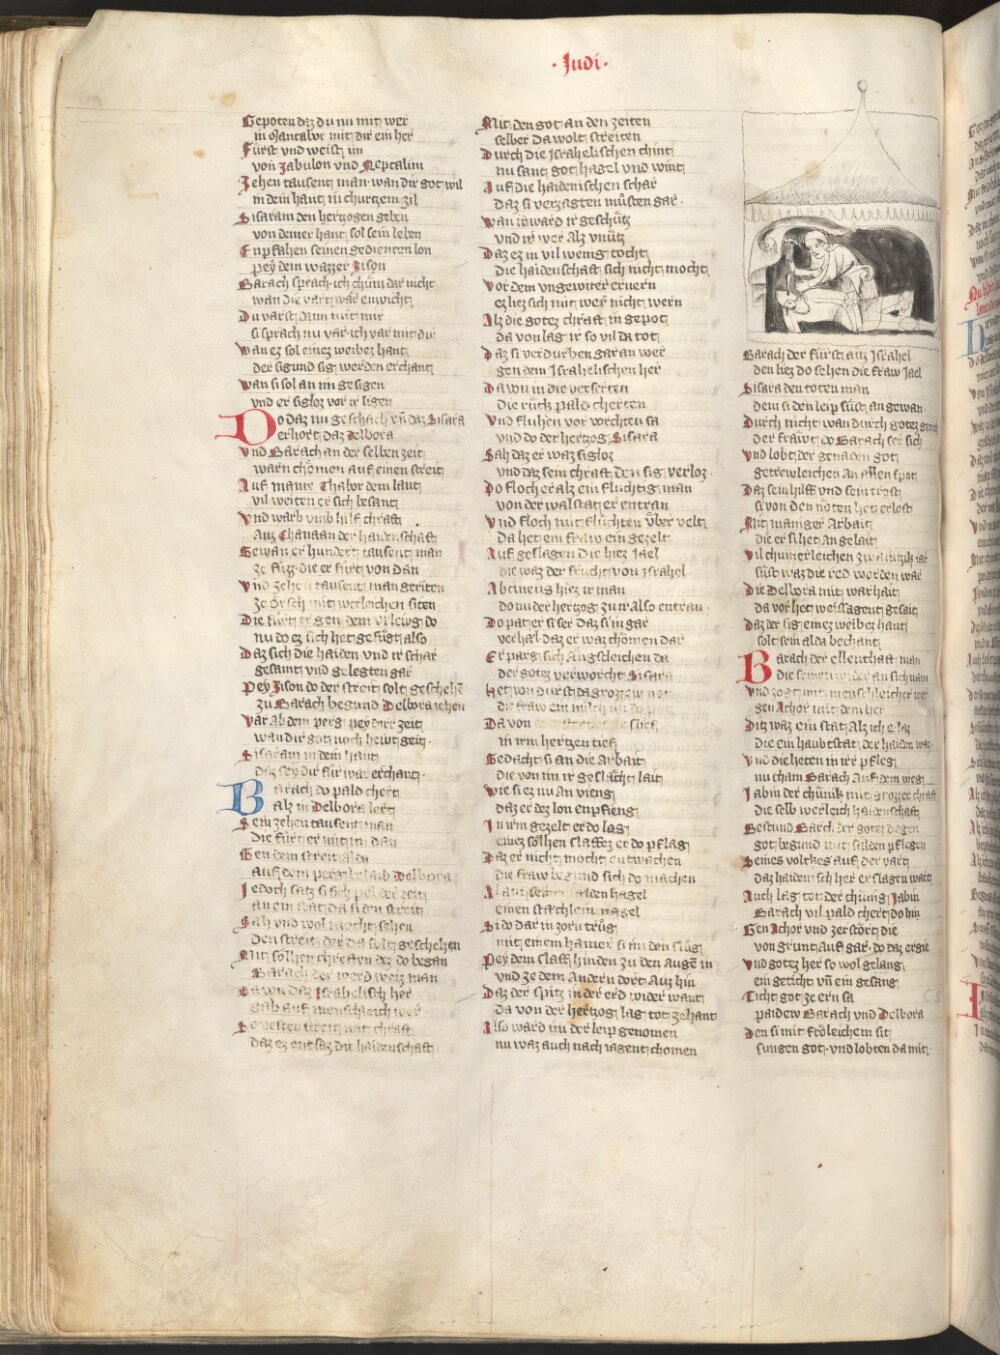 · Judi ·
Gepoten daz du nu mit wer
in Mantabor mit dir ein her
Fürst und weist im
von Zabulon vnd Neptalim
Zehen tausent man wan dir got wil
in dein hant in churtzem zil
Sisaram den hertzogen geben
von deiner hant sol sein leben
Enpfahen seinen gedienten lon
pey dem wazzer Zison
Barach sprach ich chüm dar nicht
wan die vart wär ein wicht
Du varst dann mit mir
si sprach nu var ich var mit dir
wan ez sol einez weibez hant
der sig und sig werden erchant
wan si sol an im gesigen
vnd er sigloz vor ir ligen
Do daz nu geschach vñ daz Sisara
erhort daz Delbora
vnd Barach an der selben zeit
warn chomen auf einen streit
Auf mante Thabor dem laut
vil weiten er sich besant
vnd warb vmb hilf chraft
Auz Chanaan der haidenschaft
Gewan er hundert tausent man
ze füzz die er fürt von dan
vnd zehen tausent man geriten
ze orsch mit werleichen siten
Die fürt er gen dem vrlewg do
nu do ez sich het gefügt also
Daz sich die haiden vnd ir schar
gesamt vnd gelegten gar
Pey Zison do der streit solt geschehē
zu Barach begund Delbora iehen
var ab dem perg pey der zeit
wan dir got noch hewt geit
Sisaram in dein hant
daz sey dir für war erchant
Barach do pald chert
alz in Delbora lert
Sein zehen tausent man
die fürt er mit im dan
Gen dem streit alda
auf dem perg belaib Delbora
Jedoch satz si sich pei der zeit
an ein stat da si den streit
Sah vnd wol mocht sehen
den streit der da solt geschehen
Mit sölhen chreften dez do began
Barach der werd weiz man
Da wu daz Jsrahelisch her
gab auf menschleich wer
den streit mit chraft
daz ez ent saz die haidenschaft
Mit den got an den zeiten
selber da wolt streiten
Durch die Jsrahelischen chint
nu sant got hagel vnd wint
Auf die haidenischen schar
daz si verzagten müsten gar
wan in ward ir geschütz
vnd ir wer alz vnütz
Daz ez in vil wenig tocht
die haidenschaft sich nicht mocht
vor dem vngewiter ernern
ez liez sich mit wer nicht wern
Alz die gotez chraft in gepot
da von lag ir so vil da tot
Daz si verdurben gar an wer
gen dem Jsrahelischen her
Da wn in die verserten
die rück pald cherten
vnd fluhen vor vorchten sa
vnd do der hertzog Sisara
Sah daz er waz sigloz
vnd daz sein chraft den sig verloz
Do floch er alz ein fluchtig man
von der walstat er entran
vnd floch mit flüchten über velt
da het ein fraw ein gezelt
Auf geslagen die hiez Jael
die waz der frücht von Jsrahel
Abcineus hiez ir man
do nu der hertzog zu ir also entran
Do pat er si ser daz si in gar
verhal daz er waz chomen dar
Er parg sich ängstleichen da
der gotz verworcht Sisara
Het von durst da grozzew not
die fraw ein milch im do pot
Da von slief
in irm hertzen tief
Gedacht si an die arbait
die von im ir geslächt lait
wie si ez nu an vieng
daz er dez lon enpfieng
In irm gezelt er do lag
einez sölhen slaffez er do pflag
Daz er nicht mocht entwachen
die fraw begund sich do machen
einen stächlein nagel
Si do dar in zorn trüg
mit einem hamer si im den slüg
Pey dem slaff hinden zu den augē in
vnd ze dem andern dort auz hin
Daz der spitz in der erd wider want
da von der hertzog lag tot zehant
Also ward im der leip genomen
nu waz auch nach iagent chomen
Barach der fürst auz Jsrahel
den liez do sehen die fraw Jael
Sisara den toten man
dem si den leip süst an gewan
Durch nicht wan durch gotez
der fräwt do Barach ser sich
vnd lobt der genaden got
getrewleichen an allen spot
Daz sein hilff vnd sein trost
si von den nöten het erlost
Mit maniger arbait
die er si het an gelait
vil chumerleichen zwaintzik iar
süst waz die red worden war
Die Delbora mit warhait
da vor het weissagent gesait
Daz der sig einez weibez hant
solt sein alda bechant
Barach der ellenthaft man
die seinen wider an sich nam
vnd zogt mit menschleicher wer
gen Achor mit dem her
Ditz waz ein stat alz ich ez laz
die ein haubtstat der haiden waz
vnd die heten in irr pfleg
nu cham Barach auf dem weg
Jabin der chünik mit grozzer chraft
die selb werleich haidenschaft
Bestund Barch der gotez degen
got begund mit sälden pflegen
Seines volchez auf der vart
daz haidenisch her erslagen wart
Auch lag tot der chünig Jabin
Barach vil pald chert do hin
Gen Achor vnd zerstört die
von grunt auf gar do daz ergie
vnd gotez her so wol gelang
ein geticht vñ ein gesang
Ticht got ze ern sa
paidew Barach vnd Delbora
Den si mit fröleichem sit
sungen got vnd lobten da mit